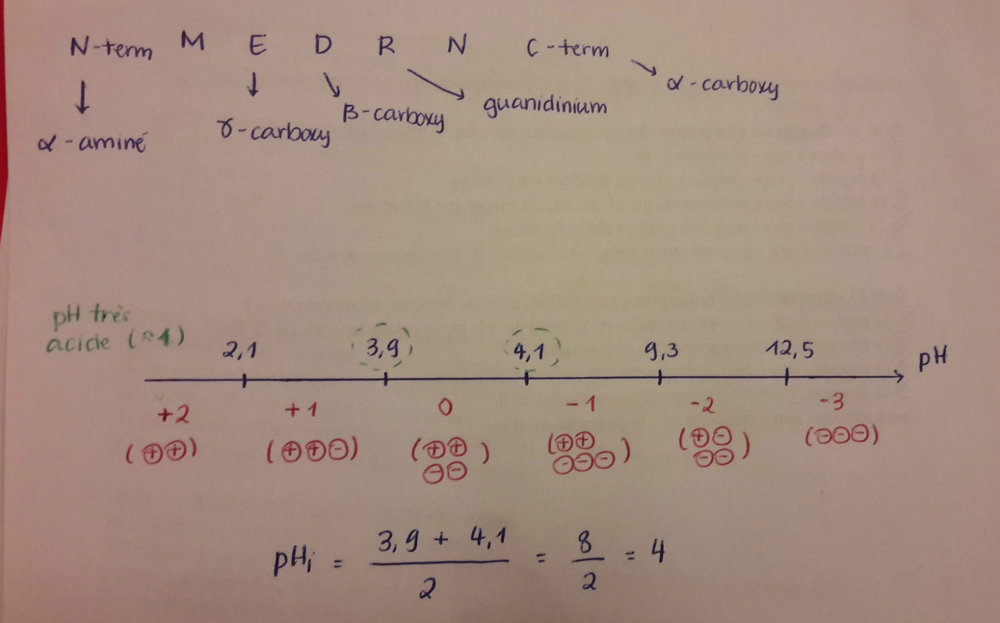 N-term M E D R N C-term
α-aminé γ-carboxy β-carboxy guanidinium α-carboxy
pH très
acide (≈1)
2,1 3,9 4,1 9,3 12,5 pH
+2 +1 0 -1 -2 -3
(⊕⊕) (⊕⊕⊖) (⊕⊕⊖⊖) (⊕⊕⊖⊖⊖) (⊕⊖⊖⊖) (⊖⊖⊖)
pHi = 3,9 + 4,1 / 2 = 8 / 2 = 4